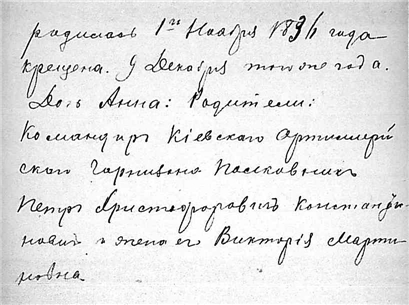 родилась 1го Ноября 1836 года
крещена. 9 Декабря того же года.
Дочь Анна: Родители:
Командиръ Кіевскаго Артиллерій
скаго Гарнизона Полковникъ
Петръ Христофоровичъ Константи
новичъ и жена его Викторія Марти
новна.